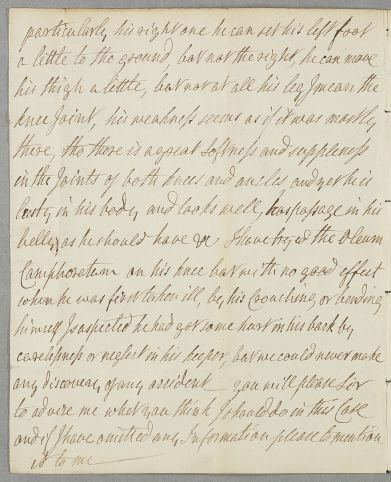 particularly his right one he can set his left foot
a little to the ground, but not the right, he can move
his thigh a little, but not at all his leg I mean the
knee Joint, his weakness seems as if it was mostly
there, tho there is a great softness and suppleness
in the Joints of both knees and ancles and yet he is
lusty in his body and looks well, has passage in his
belly as he should have &c I have try'd the Oleum
Camphoratum on his knee but with no good effect
when he was first taken ill by his Crouching or bending
himself I suspected he had got some hurt in his back by
carelessness or neglect in his keeper, but we could never make
any discovery of any accident you will please Sir
to advise me what you think I should do in this Case
and if I have omitted any Information please to mention
it to me